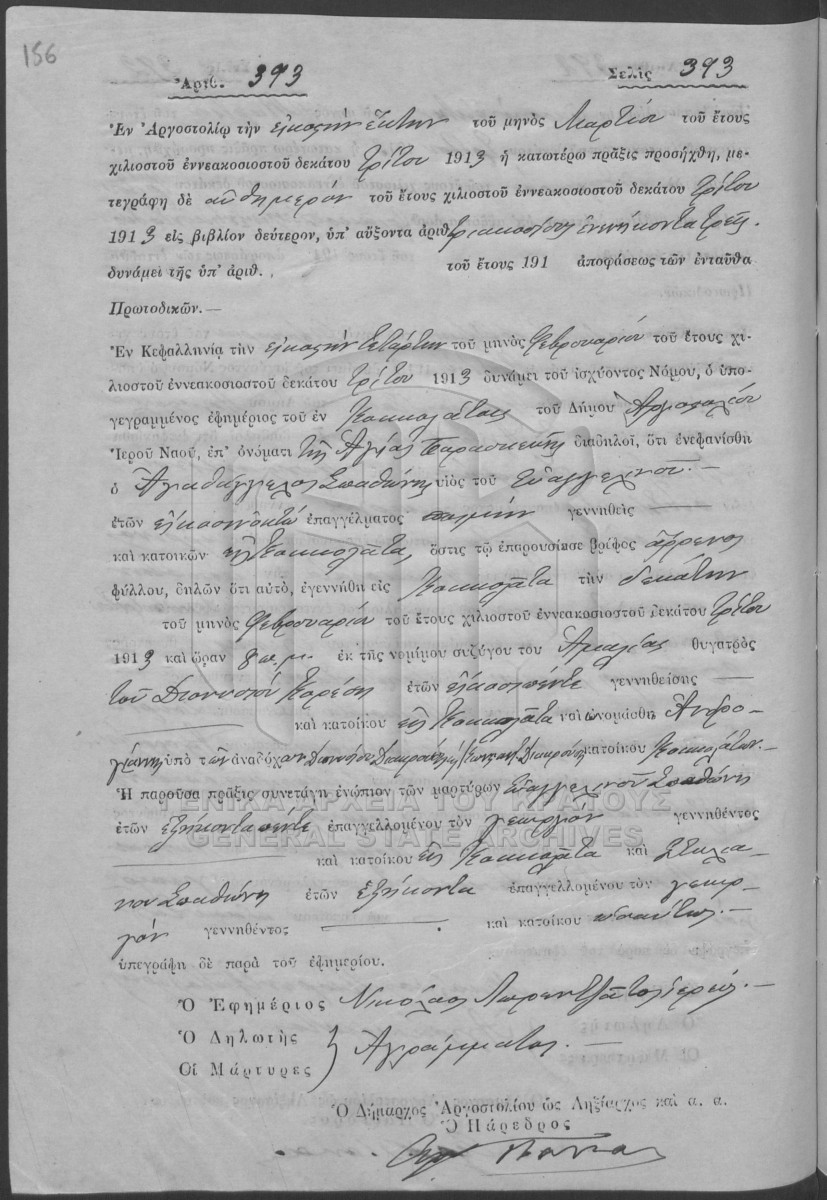 156
Ἀριθ. 393 Σελὶς 393
Ἐν Ἀργοστολίῳ τὴν εἰκοστὴν ἕκτην τοῦ μηνὸς Μαρτίου τοῦ ἔτους
χιλιοστοῦ ἐννεακοσιοστοῦ δεκάτου τρίτου 1913 ἡ κατωτέρω πρᾶξις προσήχθη, με-
τεγράφη δὲ αὐθημερόν τοῦ ἔτους χιλιοστοῦ ἐννεακοσιοστοῦ δεκάτου τρίτου
1913 εἰς βιβλίον δεύτερον, ὑπ' αὔξοντα ἀριθ. τριακόσια ἐνενήκοντα τρία.
δυνάμει τῆς ὑπ' ἀριθ. τοῦ ἔτους 191 ἀποφάσεως τῶν ἐνταῦθα
Πρωτοδικῶν.—
Ἐν Κεφαλληνίᾳ τὴν εἰκοστὴν τετάρτην τοῦ μηνὸς Φεβρουαρίου τοῦ ἔτους χι-
λιοστοῦ ἐννεακοσιοστοῦ δεκάτου τρίτου 1913 δυνάμει τοῦ ἰσχύοντος Νόμου, ὁ ὑπο-
γεγραμμένος ἐφημέριος τοῦ ἐν Κοκκολάτοις τοῦ Δήμου Ἀργοστολίου
Ἱεροῦ Ναοῦ, ἐπ' ὀνόματι τῆς Ἁγίας Παρασκευῆς διαδηλοῖ, ὅτι ἐνεφανίσθη
ὁ Ἀγαθάγγελος Σπαθώνης υἱὸς τοῦ Εὐαγγελινοῦ.—
ἐτῶν εἰκοσιοκτώ ἐπαγγέλματος ποιμήν γεννηθεὶς —
καὶ κατοικῶν εἰς Κοκκολάτα, ὅστις τῷ ἐπαρουσίασε βρέφος ἄρρενος
φύλλου, δηλῶν ὅτι αὐτό, ἐγεννήθη εἰς Κοκκολάτα τὴν δεκάτην
τοῦ μηνὸς Φεβρουαρίου τοῦ ἔτους χιλιοστοῦ ἐννεακοσιοστοῦ δεκάτου τρίτου
1913 καὶ ὥραν π.μ. ἐκ τῆς νομίμου συζύγου του Ἀμαλίας θυγατρὸς
τοῦ Διονυσίου ἐτῶν εἰκοσιπέντε γεννηθείσης —
— καὶ κατοίκου εἰς Κοκκολάτα καὶ ὠνομάσθη Ἀνδρο-
ὑπὸ τῶν ἀναδόχων κατοίκου Κοκκολάτων.—
Ἡ παροῦσα πρᾶξις συνετάγη ἐνώπιον τῶν μαρτύρων Εὐαγγελινοῦ Σπαθώνη
ἐτῶν ἑξήκοντα πέντε ἐπαγγελλομένου τὸν γεωργὸν γεννηθέντος
— καὶ κατοίκου εἰς Κοκκολάτα καὶ Στυλια-
νοῦ Σπαθώνη ἐτῶν ἑξήκοντα ἐπαγγελλομένου τὸν γεωρ-
γόν γεννηθέντος — καὶ κατοίκου ὡσαύτως.—
ὑπεγράφη δὲ παρὰ τοῦ ἐφημερίου.
Ὁ Ἐφημέριος Νικόλαος Λορεντζᾶτος ἱερεύς.—
Ὁ Δηλωτὴς
Οἱ Μάρτυρες } Ἀγράμματοι.—
Ὁ Δήμαρχος Ἀργοστολίου ὡς Ληξίαρχος καὶ α. α.
Ὁ Πάρεδρος
ΓΕΝΙΚΑ ΑΡΧΕΙΑ ΤΟΥ ΚΡΑΤΟΥΣ
GENERAL STATE ARCHIVES